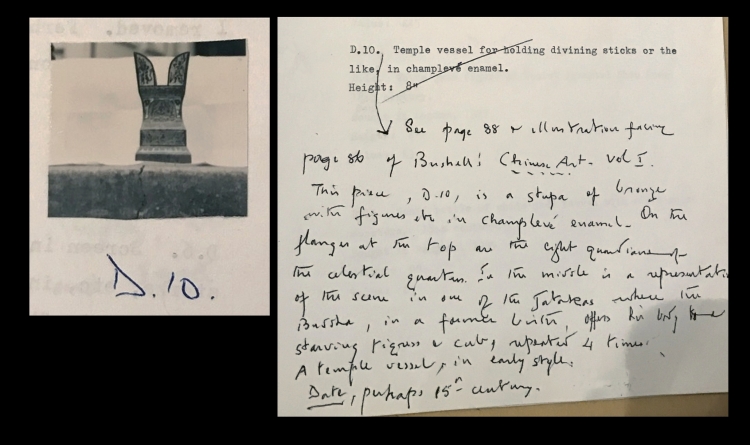 D.10.
D.10. Temple vessel for holding divining sticks or the
like, in champlevé enamel.
Height: 8"
See page 88 & illustration facing
page 86 of Bushell: Chinese Art. Vol I.
This piece, D.10, is a stupa of bronze
with figures etc in champlevé enamel. On the
flanges at the top are the eight guardians of
the celestial quarters. In the middle is a representati
of the scene in one of the Jatakas where the
Buddha, in a former birth, offers his body
starving tigress & cubs, repeated 4 times.
A temple vessel, in early style.
Date, perhaps 15th century.